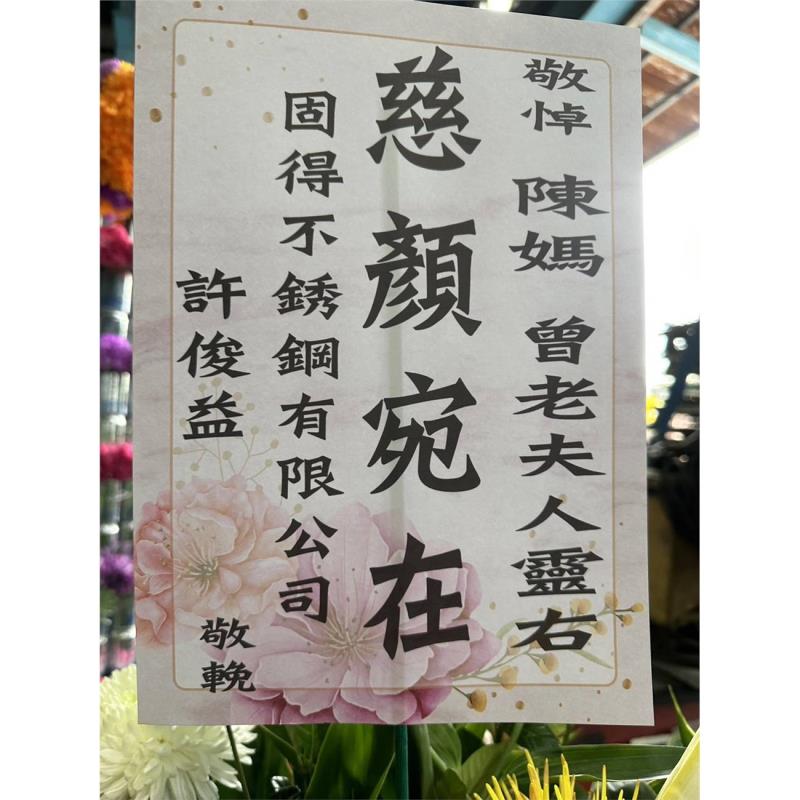 敬悼 陳媽 曾老夫人靈右
慈顏宛在
固得不銹鋼有限公司
許俊益
敬輓